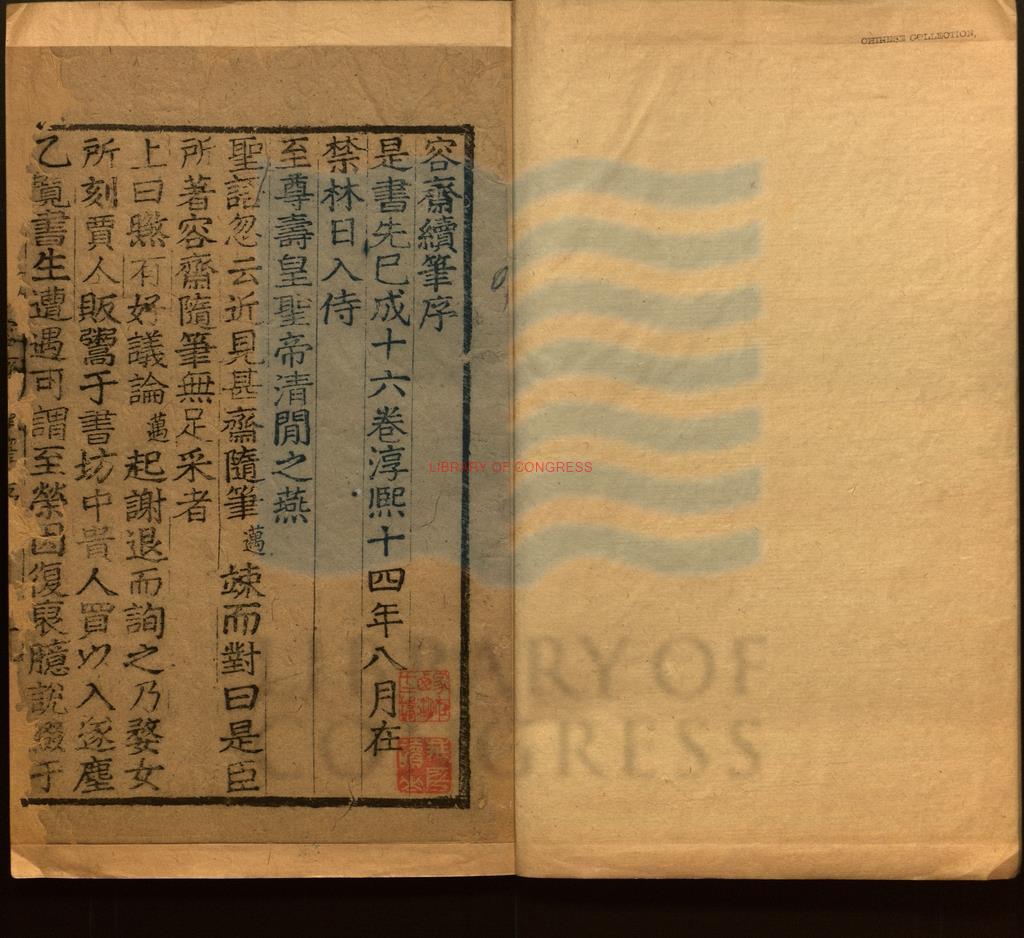 容齋續筆序
是書先已成十六卷淳熙十四年八月在
禁林日入侍
至尊壽皇聖帝清閒之燕
聖語忽云近見甚齋隨筆邁竦而對曰是臣
所著容齋隨筆無足采者
上曰㬫有好議論邁起謝退而詢之乃婺女
所刻賈人販鬻于書坊中貴人買以入遂塵
乙覽書生遭遇可謂至榮因復裒臆說綴于
CHINESE COLLECTION,
LIBRARY OF CONGRESS
LIBRARY OF
CONGRESS